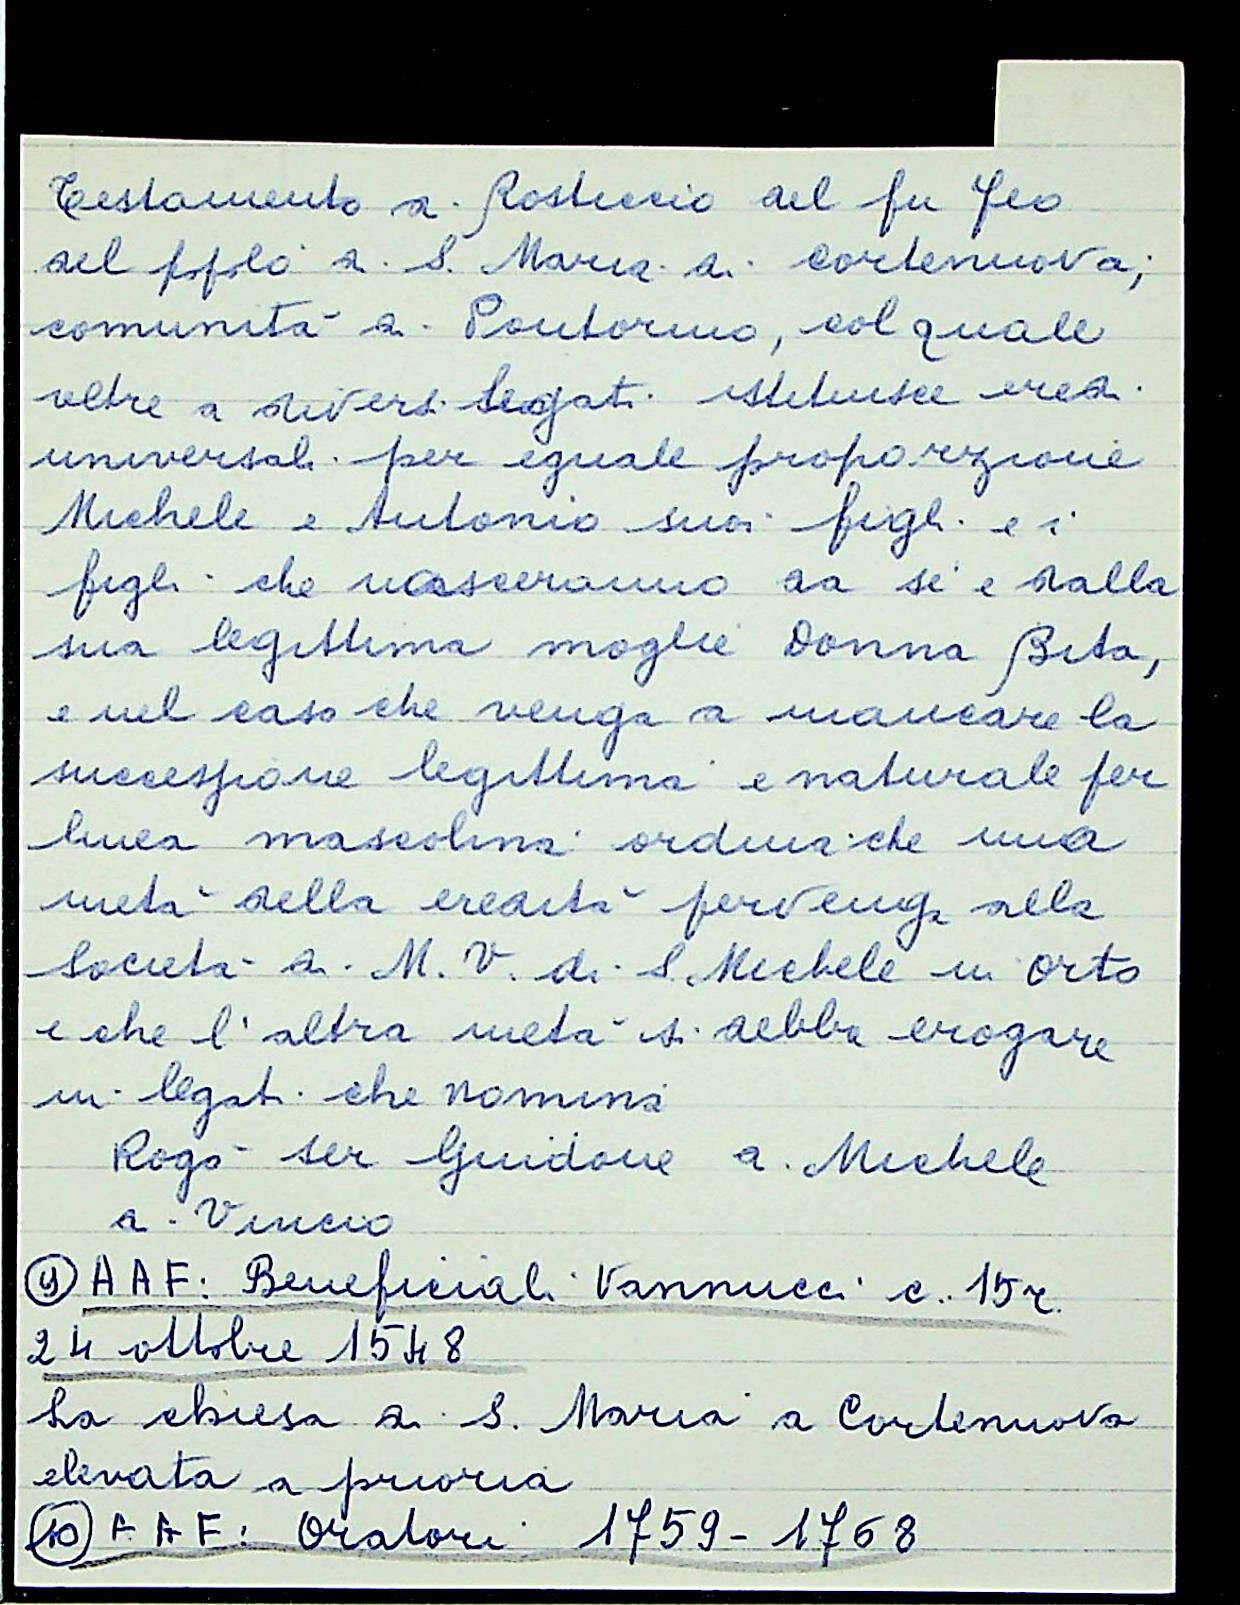 Testamento di Rosticcio del fu Feo
del popolo di S. Maria di Cortenuova,
comunità di Pontormo, col quale
oltre a diversi legati istituisce eredi
universali per eguale proporzione
Michele e Antonio suoi figli e i
figli che nasceranno da sé e dalla
sua legittima moglie Donna Bita,
e nel caso che venga a mancare la
successione legittima e naturale per
linea mascolina ordina che una
metà della eredità pervenga alla
Società di M. V. di S. Michele in Orto
e che l'altra metà si debba erogare
in legati che nomina
Rogò ser Guidone di Michele
di Vincio
9 AAF: Beneficiali Vannucci c. 15r.
24 ottobre 1548
La chiesa di S. Maria a Cortenuova
elevata a prioria
10 AAF: Oratori 1759-1768